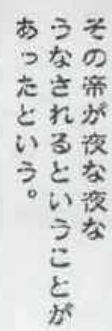 その帝が夜な夜な
うなされるということが
あったという。